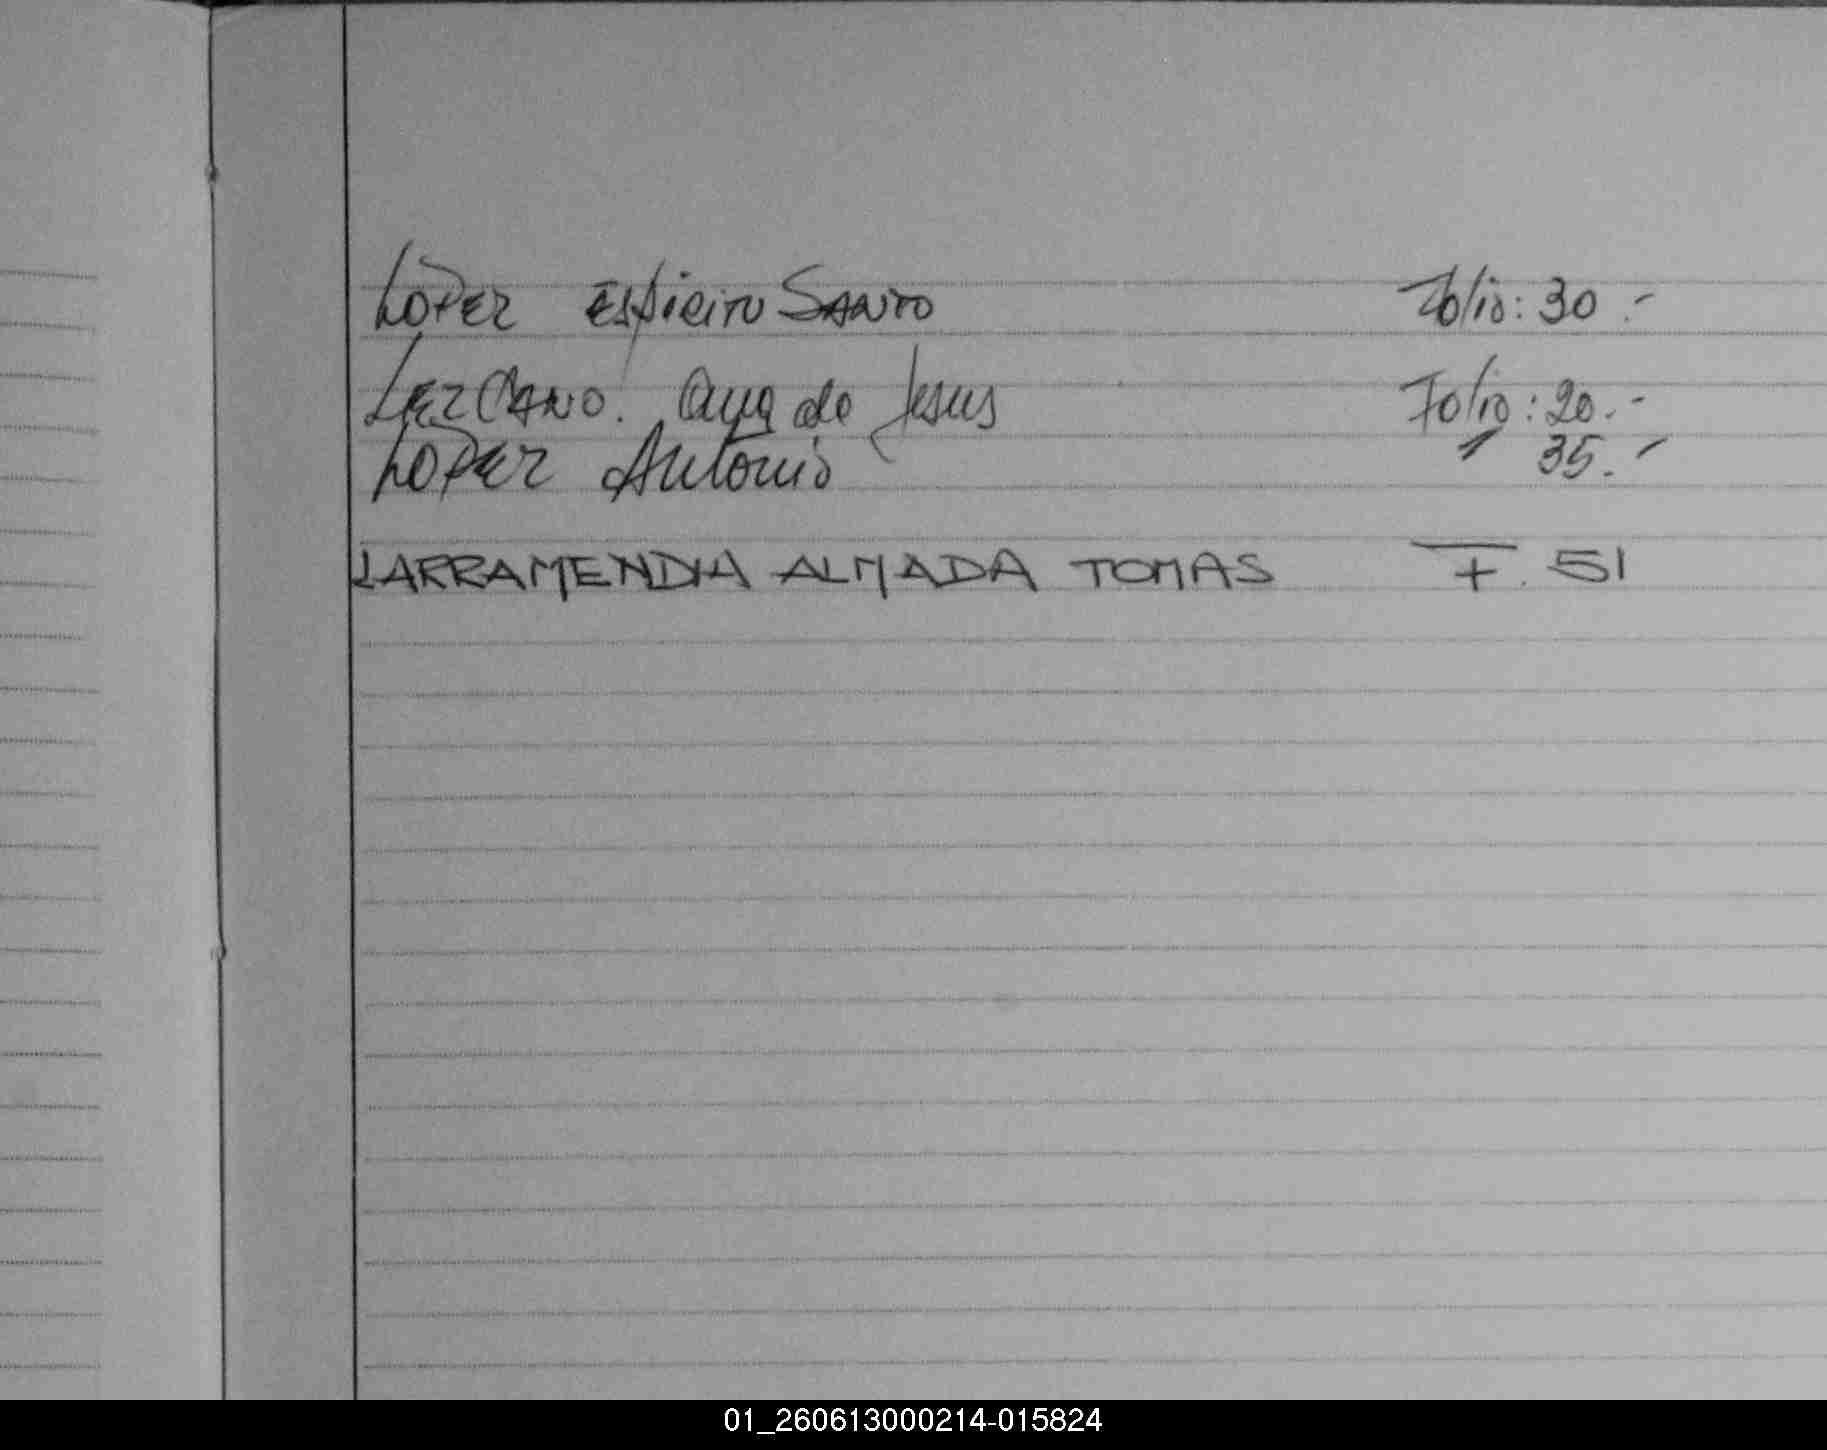 LOPEZ ESpIRITU SANTO Folio: 30.-
LEZCANO. Ana de Jesus Folio: 20.-
LOPEZ Antonio " 35.-
LARRAMENDIA ALMADA TOMAS F. 51
01_260613000214-015824